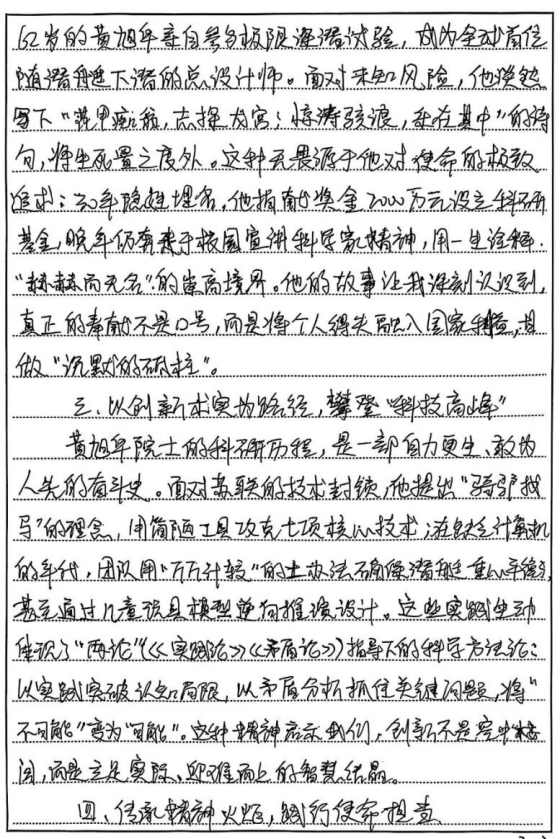 62岁的黄旭华亲自参与极限深潜试验，成为全球首位
随潜艇下潜的总设计师。面对未知风险，他淡然
写下“花甲痴翁，志探龙宫；惊涛骇浪，乐在其中”的诗
句，将生死置之度外。这种无畏源于他对使命的极致
追求：30年隐姓埋名，他捐献奖金2000万元设立科研
基金，晚年仍奔走于校园宣讲科学家精神，用一生诠释
“赫赫而无名”的崇高境界。他的故事让我深刻认识到，
真正的奉献不是口号，而是将个人得失融入国家利益，甘
做“沉默的砥柱”。
三、以创新求实为路径，攀登“科技高峰”
黄旭华院士的科研历程，是一部自力更生、敢为
人先的奋斗史。面对苏联的技术封锁，他提出“骑驴找
马”的理念，用简陋工具攻克七项核心技术；在缺乏计算机
的年代，团队用“斤斤计较”的土办法确保潜艇重心平衡，
甚至通过儿童玩具模型逆向推演设计。这些实践生动
体现了“两论”（《实践论》《矛盾论》）指导下的科学方法论：
以实践突破认知局限，以矛盾分析抓住关键问题，将“
不可能”变为“可能”。这种精神启示我们，创新不是空中楼
阁，而是立足实际、迎难而上的智慧结晶。
四、传承精神火炬，践行使命担当